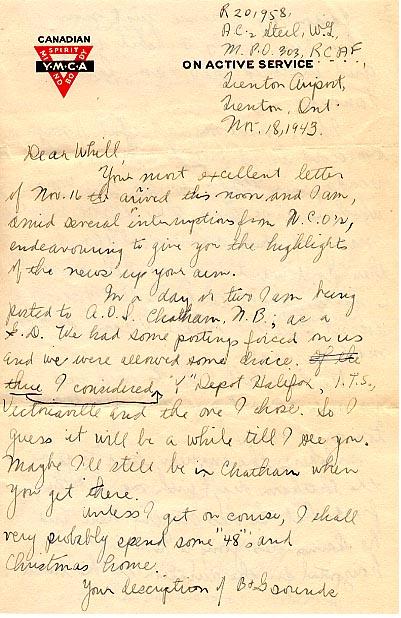 R201958,
AC2 Steel, W.G,
M.P.O. 303, RCAF,
CANADIAN
SPIRIT
MIND
BODY
Y·M·C·A
ON ACTIVE SERVICE
Trenton Airport,
Trenton, Ont.
Nov. 18, 1943.
Dear Whill,
Your most excellent letter
of Nov. 16 arived this noon and I am,
amid several interruptions from N.C.O's,
endeavouring to give you the highlights
of the news up your aim.
In a day or two I am being
posted to A.O.S. Chatham, N.B.; as a
G.D. We had some postings forced on us
and we were allowed some choice. of the
three I considered, "Y" Depot Halifax, I.T.S.,
Victoriaville and the one I chose. So I
guess it will be a while till I see you.
Maybe I'll still be in Chatham when
you get there.
Unless I get on course, I shall
very probably spend some "48"s and
Christmas home.
Your description of B+G sounds